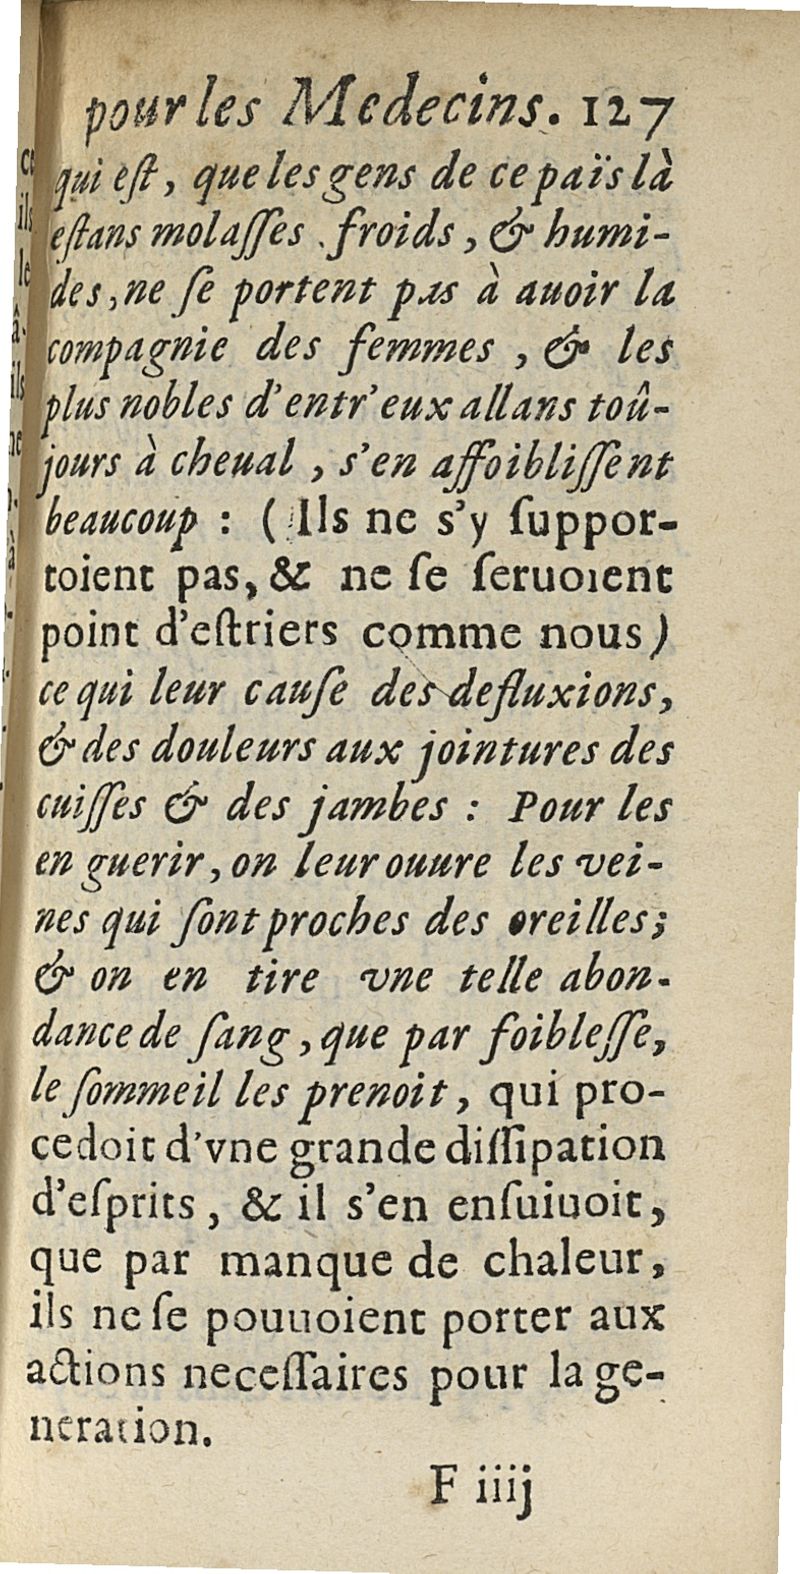 pour les Medecins. 127
qui eſt, que les gens de ce païs là
eſtans molaſſes froids, & humi-
des, ne ſe portent pas à auoir la
compagnie des femmes, & les
plus nobles d'entr'eux allans toû-
jours à cheual, s'en affoibliſſent
beaucoup : (Ils ne s'y ſuppor-
toient pas, & ne ſe ſeruoient
point d'eſtriers comme nous)
ce qui leur cauſe des defluxions,
& des douleurs aux jointures des
cuiſſes & des jambes : Pour les
en guerir, on leur ouure les vei-
nes qui ſont proches des oreilles;
& on en tire vne telle abon-
dance de ſang, que par foibleſſe,
le ſommeil les prenoit, qui pro-
cedoit d'vne grande diſſipation
d'eſprits, & il s'en enſuiuoit,
que par manque de chaleur,
ils ne ſe pouuoient porter aux
actions neceſſaires pour la ge-
neration.
F iiij